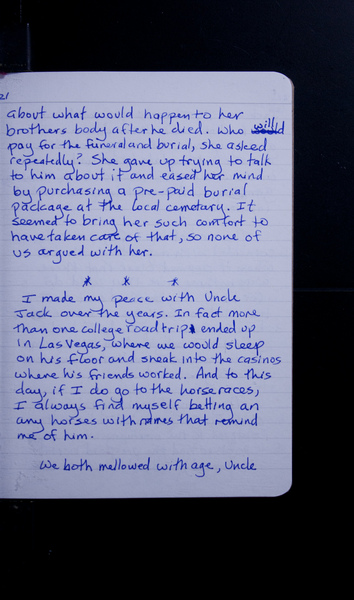 21
about what would happen to her
brothers body after he died. Who will
pay for the funeral and burial, she asked
repeatedly? She gave up trying to talk
to him about it and eased her mind
by purchasing a pre-paid burial
package at the local cemetary. It
seemed to bring her such comfort to
have taken care of that, so none of
us argued with her.
* * *
I made my peace with Uncle
Jack over the years. In fact more
than one college road trip ended up
in Las Vegas, where we would sleep
on his floor and sneak into the casinos
where his friends worked. And to this
day, if I do go to the horse races,
I always find myself betting on
any horses with names that remind
me of him.
We both mellowed with age, Uncle